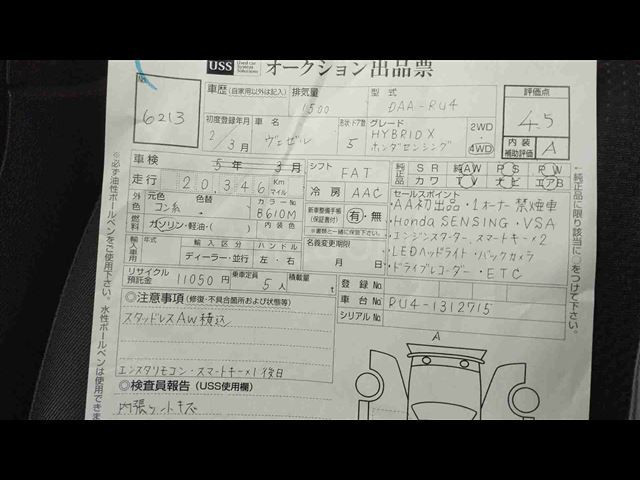 USS Used car System Solutions オークション出品票
No.
6213
車歴 (自家用以外は記入) 排気量 1500 型式 DAA-RU4
初度登録年月 2/3月 車名 ヴェゼル 形状 ドア数 5 グレード HYBRID X ホンダセンシング 2WD 4WD
評価点 4.5
内装 補助評価 A
車検 5年 3月 シフト FAT
純正品 SR 純AW PS PW
カワ TV ナビ エアB
走行 20,346 Km マイル 冷房 AAC
セールスポイント
・AA初出品・1オーナー禁煙車
・Honda SENSING・VSA
・エンジンスターター、スマートキー×2
・LEDヘッドライト・バックカメラ
・ドライブレコーダー・ETC
外色 元色 コン系 色替 カラーNo B610M
新車整備手帳 (保証書付) 有・無
※書類と一緒に保管下さい。
燃料 ガソリン・軽油・( ) 内装色
輸入車用 年式 輸入区分 ハンドル
ディーラー・並行 左・右
名義変更期限
月 日
リサイクル預託金 11050円 乗車定員 5人 積載量 t
登録No
車台No RU4-1312715
シリアルNo
◎注意事項 (修復・不具合箇所および状態等)
スタッドレスAW積込
エンスタリモコン・スマートキー×1 後日
◎検査員報告 (USS使用欄)
内張り
A
※必ず油性ボールペンをご使用下さい。水性ボールペンは使用できま
・純正品に限り該当に○をつけて下さい。